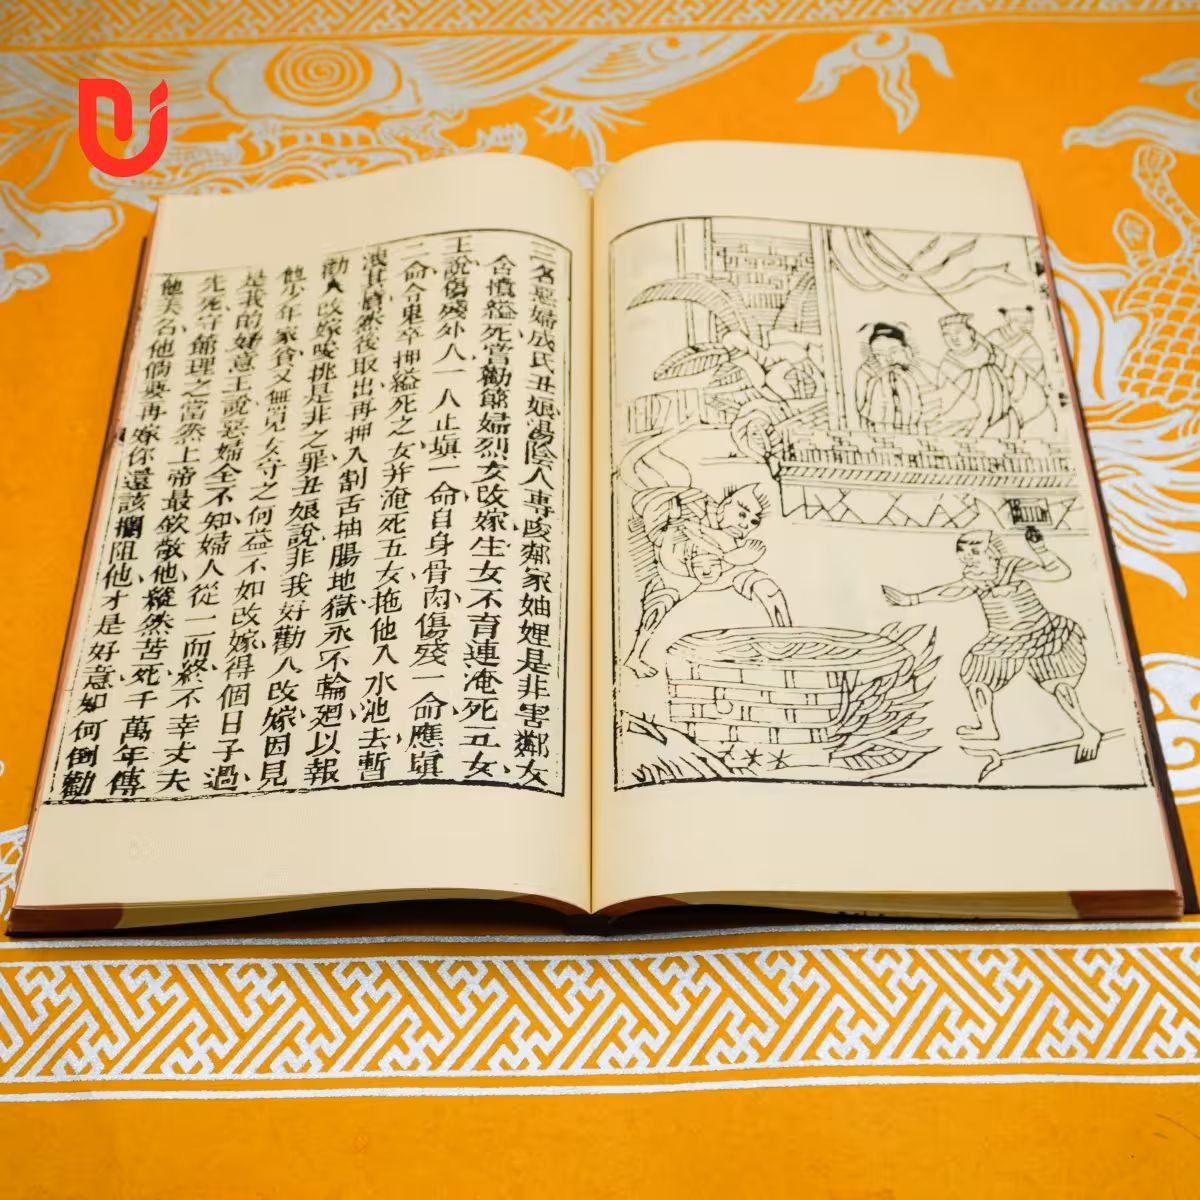 三名惡婦成氏丑娘湯陰人專唆鄰家妯娌是非害鄰女
含憤縊死嘗勸節婦烈女改嫁生女不育連淹死五女
王說傷殘外人一人止塡一命自身骨肉傷殘一命應塡
二命令鬼卒押縊死之女并淹死五女拖他入水池去暫
洩其憤然後取出再押入割舌抽腸地獄永不輪廻以報
勸人改嫁唆挑是非之罪丑娘說非我好勸人改嫁因見
他少年家貧又無兒女守之何益不如改嫁得個日子過
是我的好意王說惡婦全不知婦人從一而終不幸丈夫
先死守節理之當然上帝最欽敬他縱然苦死千萬年傳
他美名他倘要再嫁你還該攔阻他才是好意如何倒勸